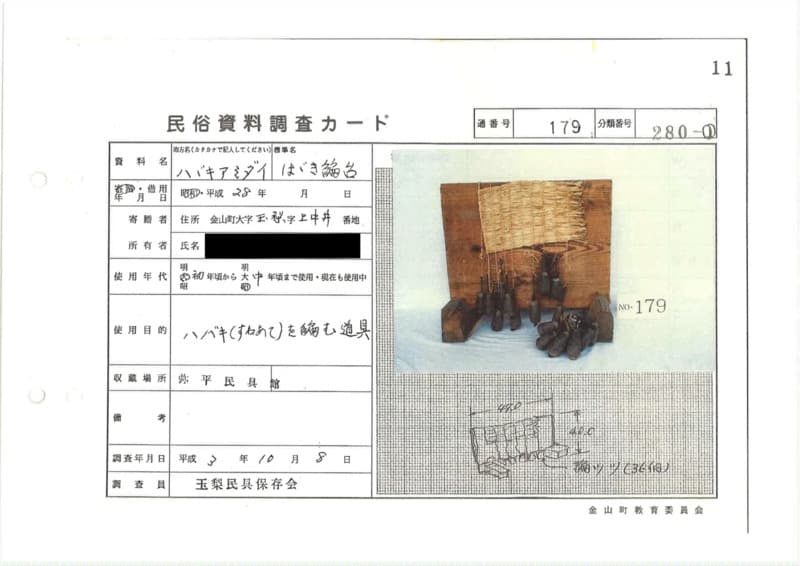 11
民俗資料調査カード
通番号 179 分類番号 280-①
資料名 地方名(カタカナで記入してください) 標準名
ハバキアミダイ はばき編台
寄贈・借用年月日 昭和・平成 28年 月 日
寄贈者 住所 金山町大字玉梨字上中井 番地
所有者 氏名
使用年代 明大昭 初年頃から 明大昭 中年頃まで使用・現在も使用中
使用目的 ハバキ(すねあて)を編む道具
収蔵場所 弥平民具館
備考
調査年月日 平成 3年 10月 8日
調査員 玉梨民具保存会
NO. 179
49.0
40.0
編ツツ(36個)
金山町教育委員会